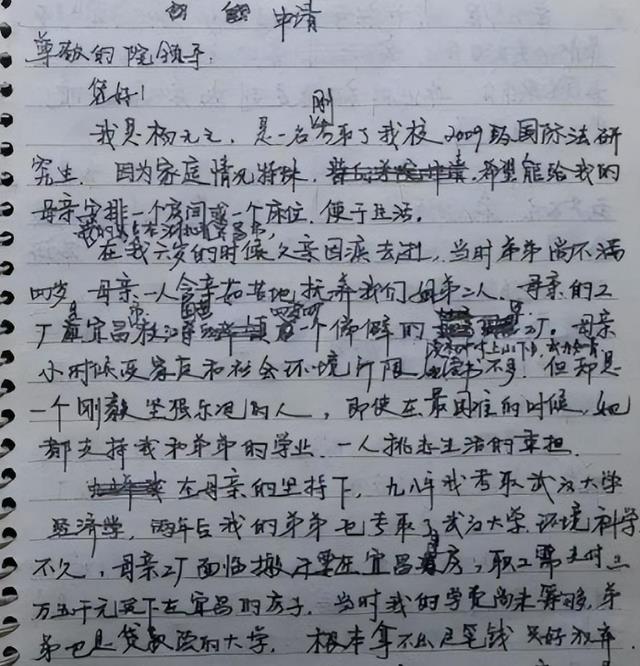 申请
尊敬的院领导:
您好!
刚
我是杨元元,是一名考取了我校2009级国际法研
究生.因为家庭情况特殊,希望能给我的
母亲安排一个房间或一个床位,便于生活。
在我六岁的时候父亲因病去逝,当时弟弟尚不满
四岁,母亲一人含辛茹苦地抚养我们姐弟二人.母亲的工
厂在宜昌枝江一个偏僻的工厂。母亲
小时候受家庭和社会环境所限,读书不多!但却是
一个刚毅坚强乐观的人,即使在最困难的时候,她
都支持我和弟弟的学业.一人挑起生活的重担.
在母亲的坚持下,九八年我考取武汉大学
经济学,两年后我的弟弟也考取了武汉大学环境科学
不久,母亲工厂面临搬迁要在宜昌房,职工需支付三
万五千元买下在宜昌的房子.当时我的学费尚未筹够,弟
弟也是贷款读的大学,根本拿不出这笔钱只好放弃.